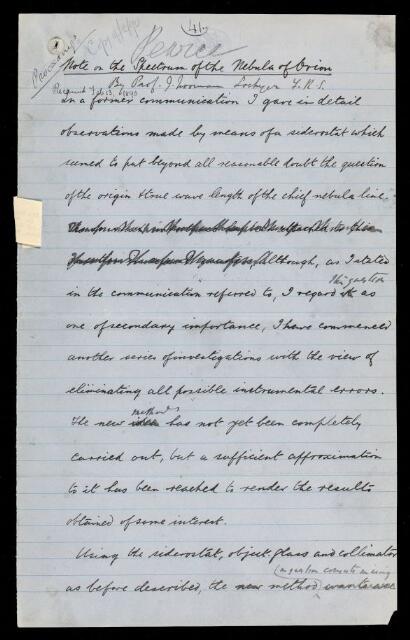 41
Pearce
Note on the Spectrum of the Nebula of Orion
By Prof. J. Norman Lockyer F.R.S.
Received Feb 13, 1890
In a former communication I gave in detail
observations made by means of a siderostat which
seemed to put beyond all reasonable doubt the question
of the origin & true wave length of the chief nebula line.
Although, as I stated
this question
in the communication referred to, I regard it as
one of secondary importance, I have commenced
another series of investigations with the view of
eliminating all possible instrumental errors.
method
The new idea has not yet been completely
carried out, but a sufficient approximation
to it has been reached to render the results
obtained of some interest.
Using the siderostat, object glass and collimator
in question consists in using
as before described, the new method